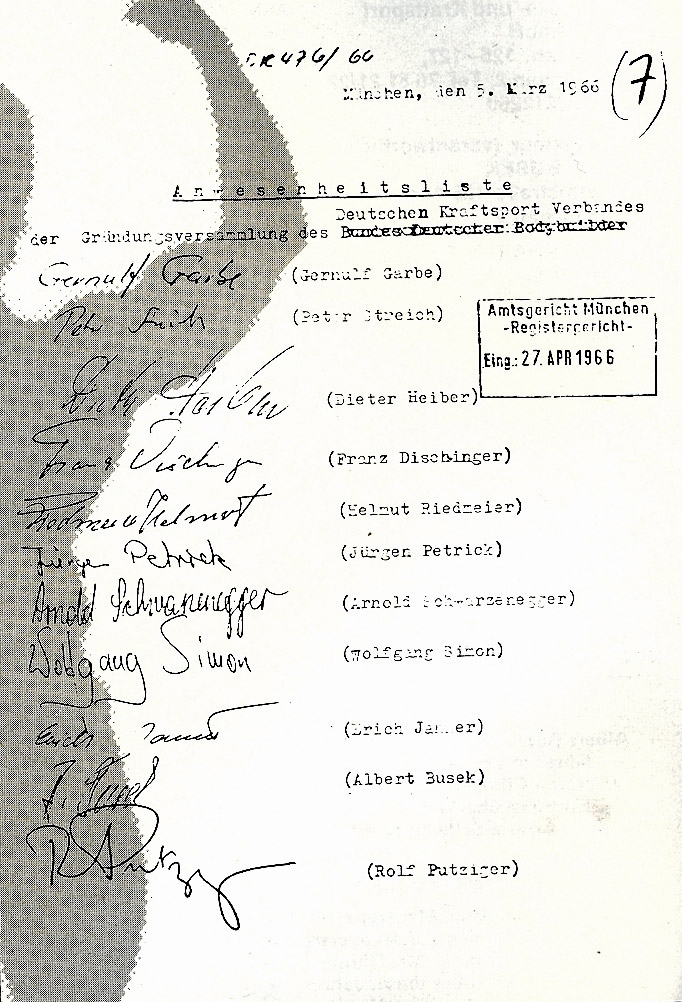 476/66
München, den 5. März 1966 (7)
Anwesenheitsliste
Deutschen Kraftsport Verbandes
der Gründungsversammlung des Bundes Deutscher Bodybuilder
Gernulf Garbe (Gernulf Garbe)
Peter Streich (Peter Streich)
Amtsgericht München
-Registergericht-
Eing.: 27. APR 1966
Dieter Heiber (Dieter Heiber)
Franz Dischinger (Franz Dischinger)
Riedmeier Helmut (Helmut Riedmeier)
Jürgen Petrick (Jürgen Petrick)
Arnold Schwarzenegger (Arnold Schwarzenegger)
Wolfgang Simon (Wolfgang Simon)
Erich Janner (Erich Janner)
A. Busek (Albert Busek)
R. Putziger (Rolf Putziger)